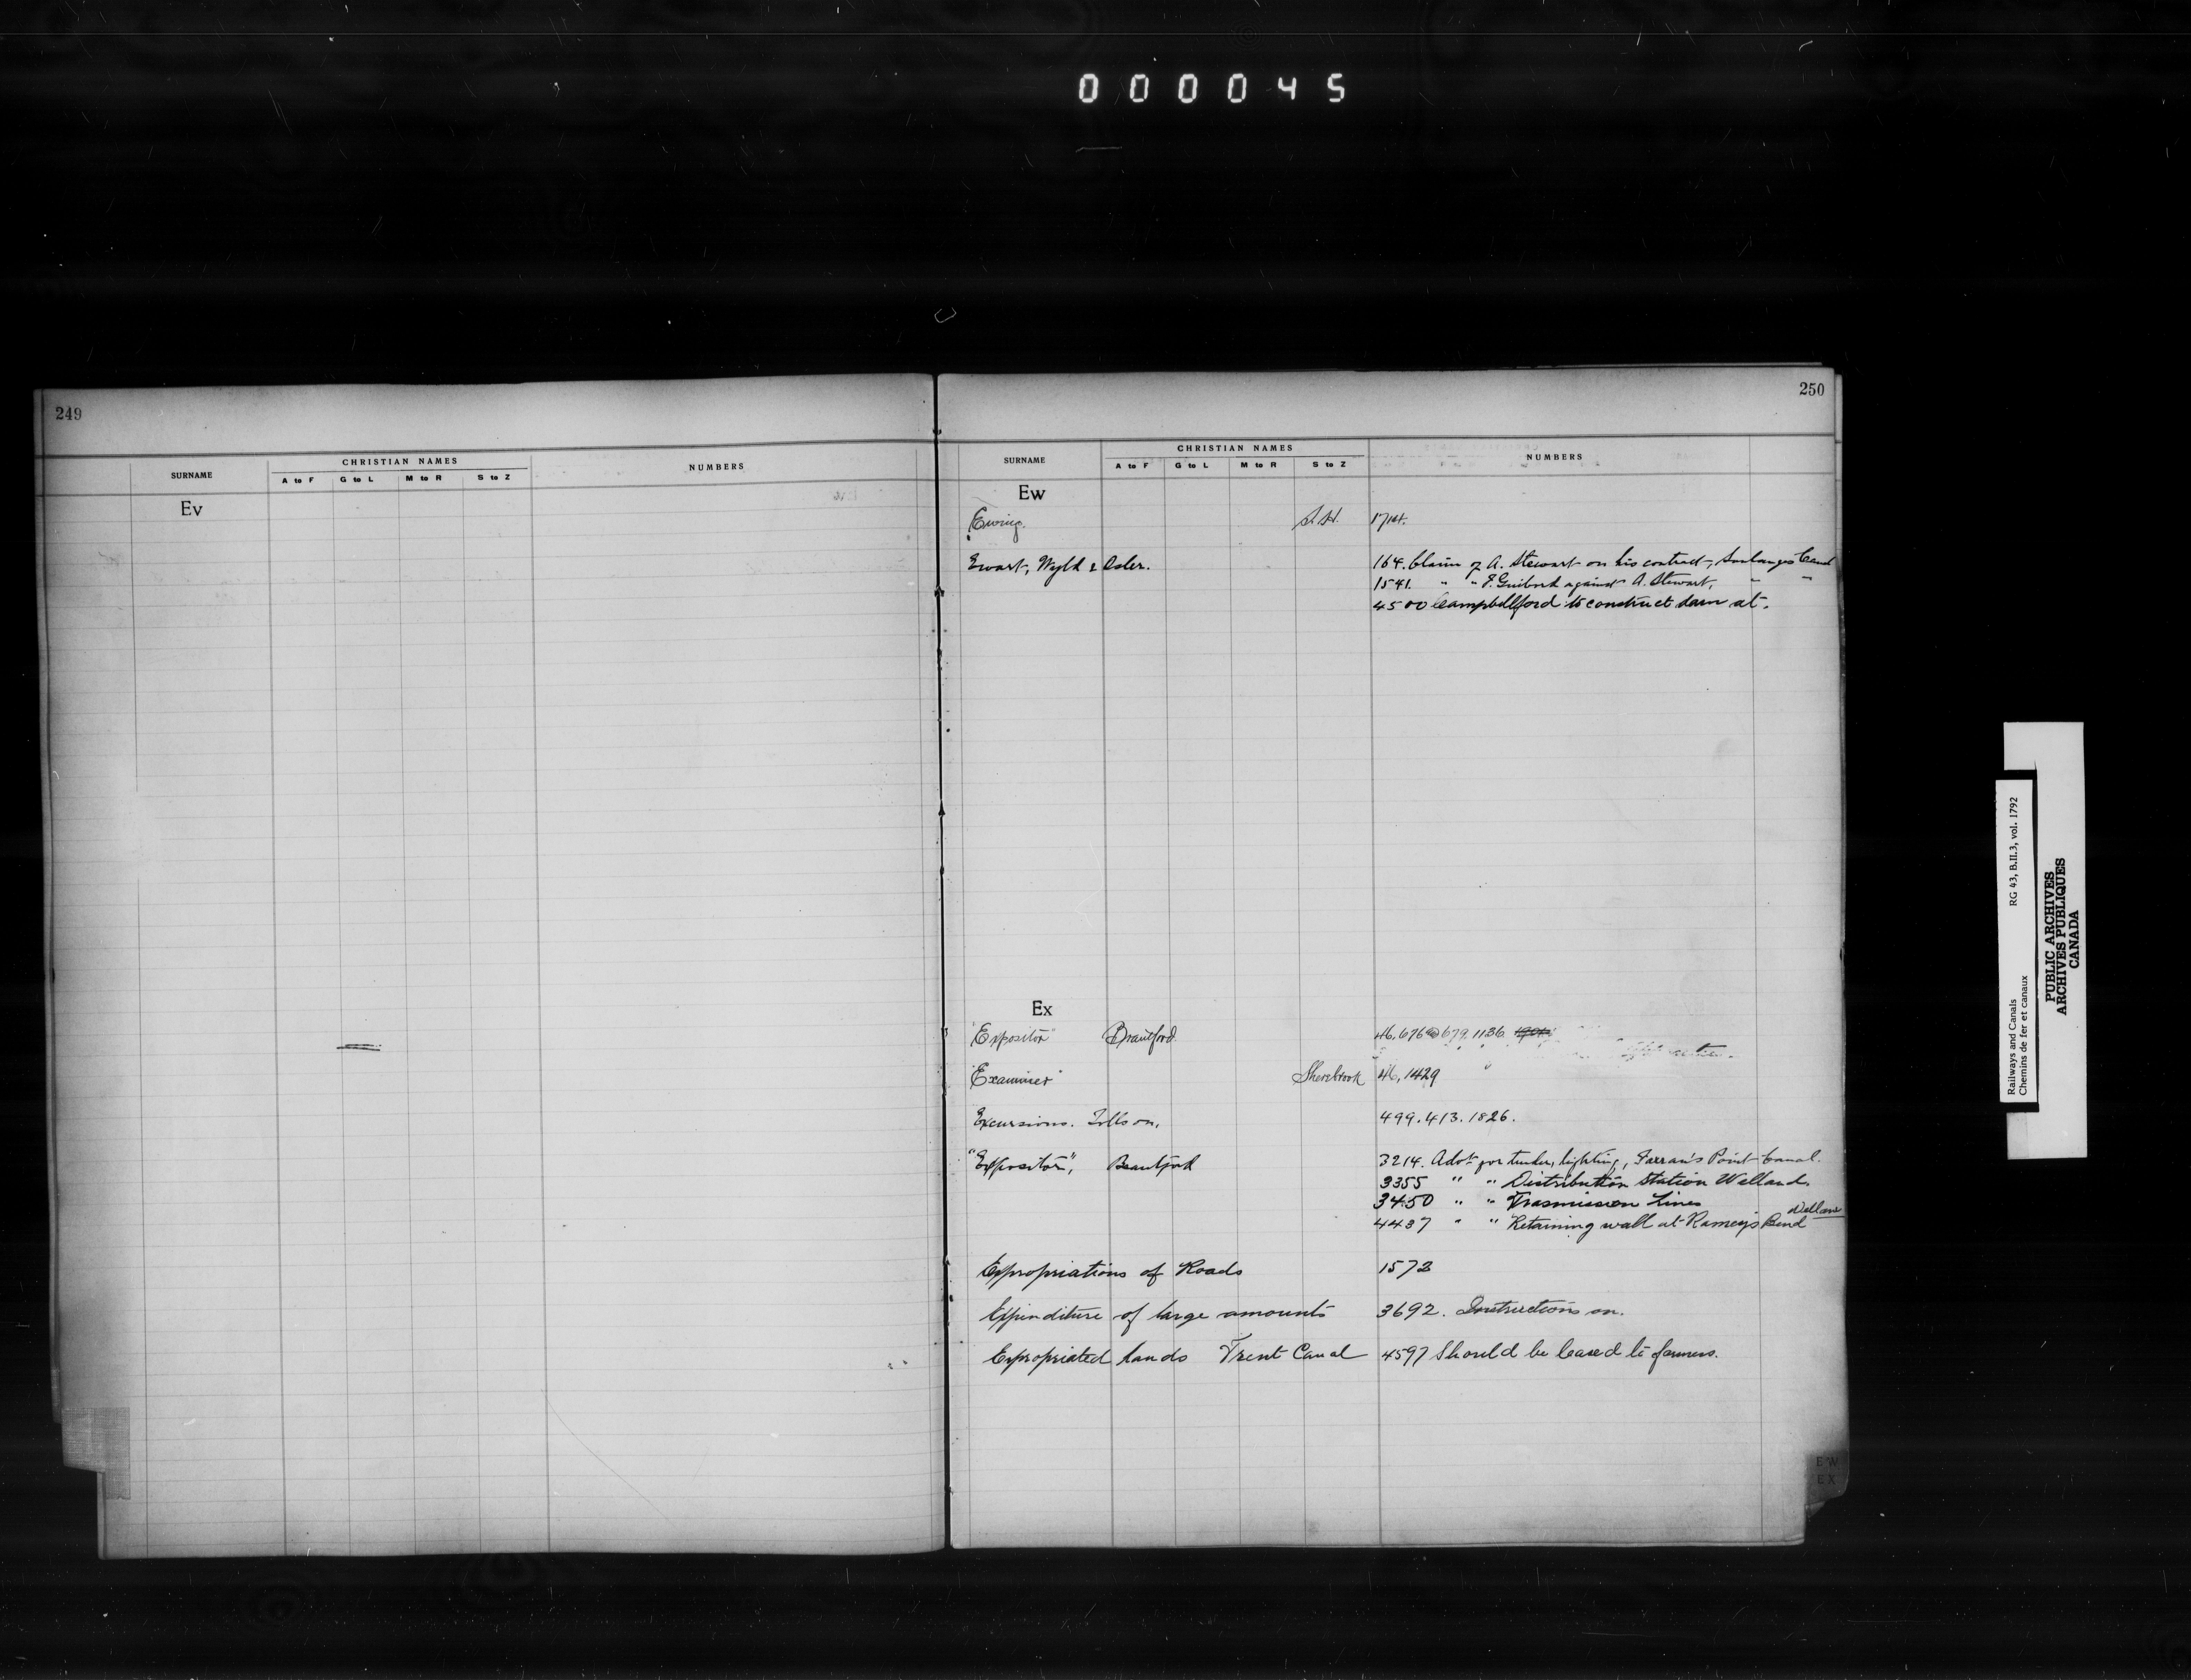 000045
249
SURNAME CHRISTIAN NAMES NUMBERS
A to F G to L M to R S to Z
Ev
250
SURNAME CHRISTIAN NAMES NUMBERS
A to F G to L M to R S to Z
Ew
Ewing. S.H. 1714.
Ewart, Wyld & Osler. 164. Claim of A. Stewart on his contract, Soulanges Canal
1541. " " against A. Stewart, " "
4500 Campbellford to construct dam at.
Ex
"Expositor" Brantford. 46. 676 @ 679. 1136.
"Examiner" Sherbrook 46, 1429
Excursions. Tolls on. 499. 413. 1826.
"Expositor", Brantford 3214. Advt for tender, lighting, Farran's Point Canal.
3355 " " Distribution Station Welland.
3450 " " Trasmission Lines
4437 " " Retaining wall at Ramey's Bend Welland
Expropriations of Roads 1572
Expenditure of large amounts 3692. Instructions on.
Expropriated lands Trent Canal 4597 Should be leased to farmers.
EW
EX
Railways and Canals RG 43, B.II.3, vol. 1792
Chemins de fer et canaux
PUBLIC ARCHIVES
ARCHIVES PUBLIQUES
CANADA